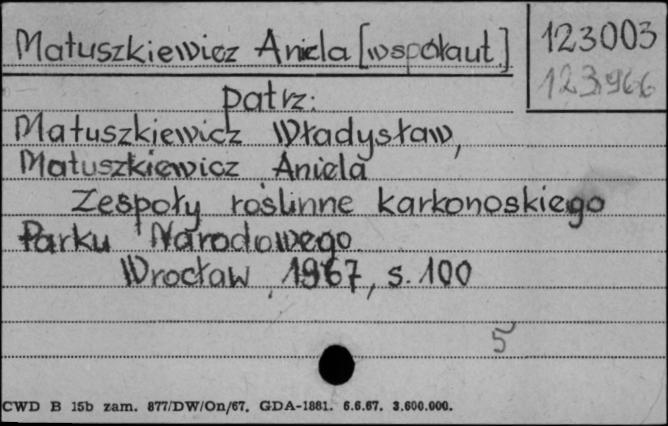 Matuszkiewicz Aniela [współaut.]
123003
123966
patrz:
Matuszkiewicz Władysław,
Matuszkiewicz Aniela
Zespoły roślinne karkonoskiego
Parku Narodowego
Wrocław, 1967, s. 100
5
CWD B 15b zam. 877/DW/On/67. GDA-1881. 6.6.67. 3.600.000.